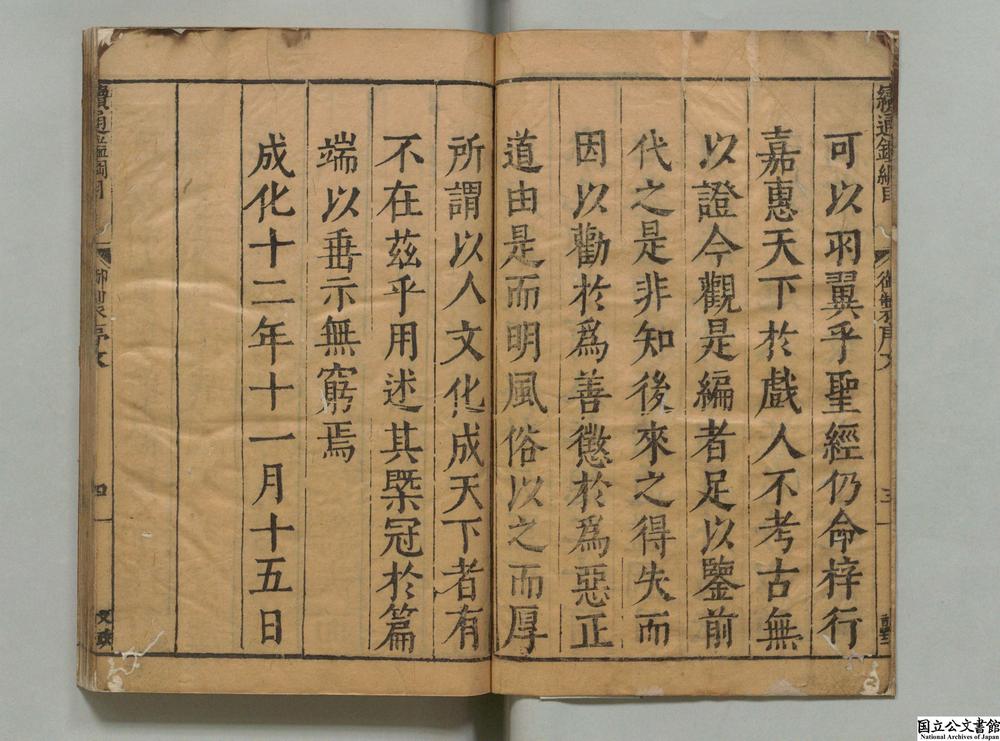 續通鑑綱目
御製序文
三
可以羽翼乎聖經仍命梓行
嘉惠天下於戲人不考古無
以證今觀是編者足以鑒前
代之是非知後來之得失而
因以勸於為善懲於為惡正
道由是而明風俗以之而厚
所謂以人文化成天下者有
不在茲乎用述其槩冠於篇
端以垂示無窮焉
成化十二年十一月十五日
續通鑑綱目
御製序文
四
国立公文書館
National Archives of Japan